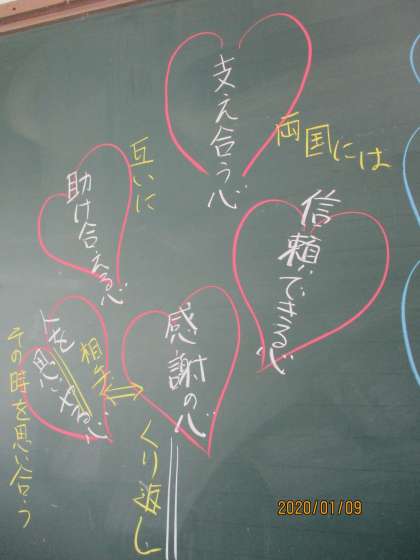 支え合う心
両国には
互いに
助け合える心
信頼できる心
感謝の心
相手
人を思いやる心
その時を思い合う
くり返し
2020/01/09